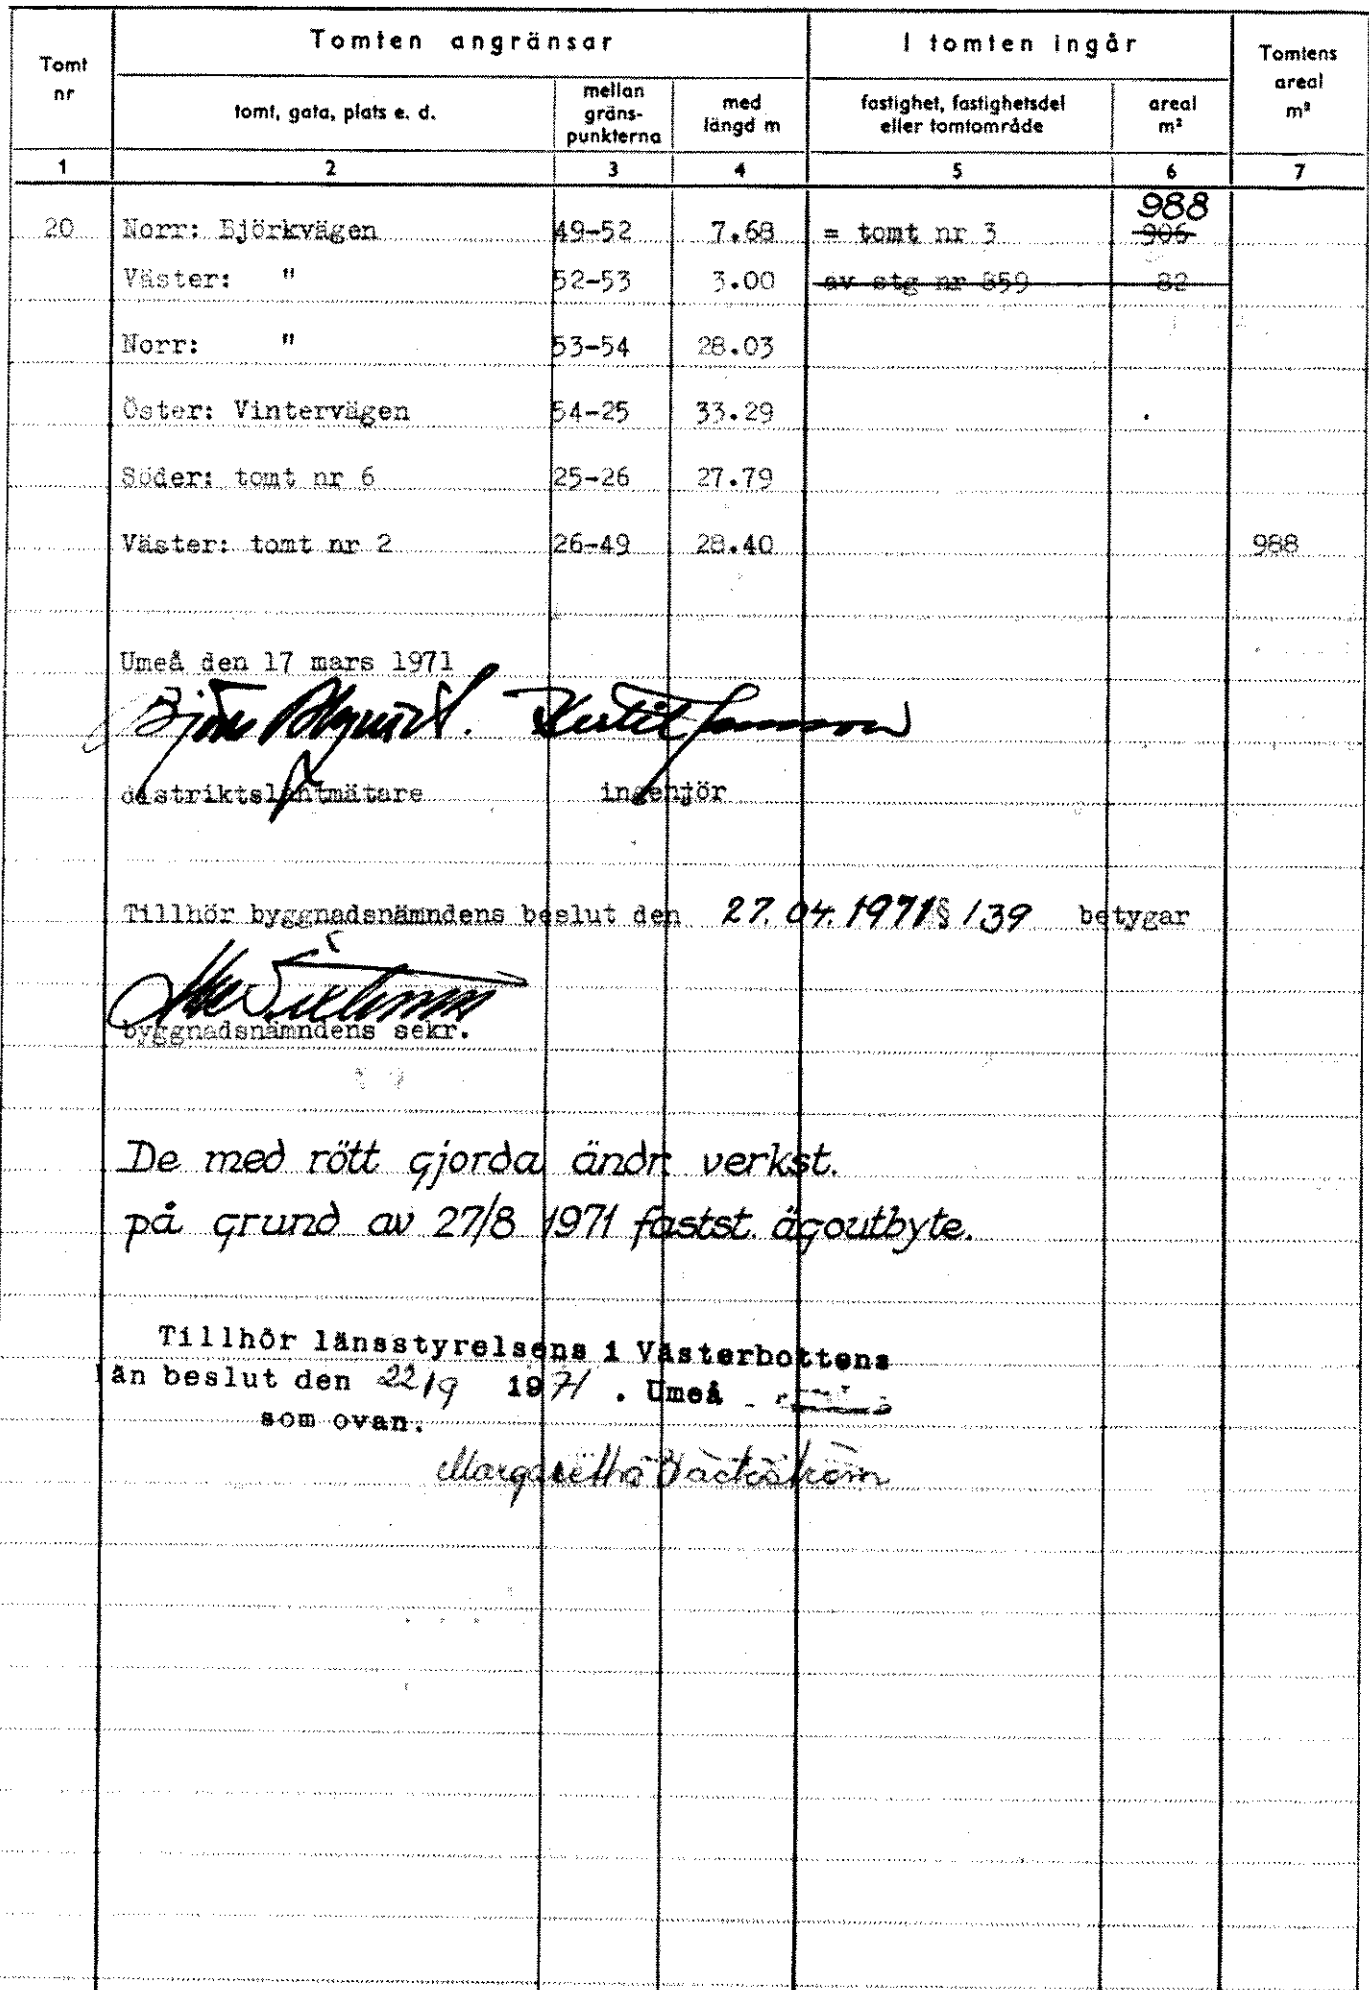 Tomt nr
Tomten angränsar
I tomten ingår
Tomtens areal m²
tomt, gata, plats e. d.
mellan gräns-punkterna
med längd m
fastighet, fastighetsdel eller tomtområde
areal m²
1 2 3 4 5 6 7
988
20 Norr: Björkvägen 49-52 7.68 = tomt nr 3 906
Väster: " 52-53 3.00 av stg nr 859 82
Norr: " 53-54 28.03
Öster: Vintervägen 54-25 33.29
Söder: tomt nr 6 25-26 27.79
Väster: tomt nr 2 26-49 28.40 988
Umeå den 17 mars 1971
Björn Kertil Jansson
distriktslantmätare ingenjör
Tillhör byggnadsnämndens beslut den 27.04.1971 § 139 betygar
byggnadsnämndens sekr.
De med rött gjorda ändr. verkst.
på grund av 27/8 1971 fastst. ägoutbyte.
Tillhör länsstyrelsens i Västerbottens
län beslut den 22/9 1971 . Umeå
som ovan.
Margaretha